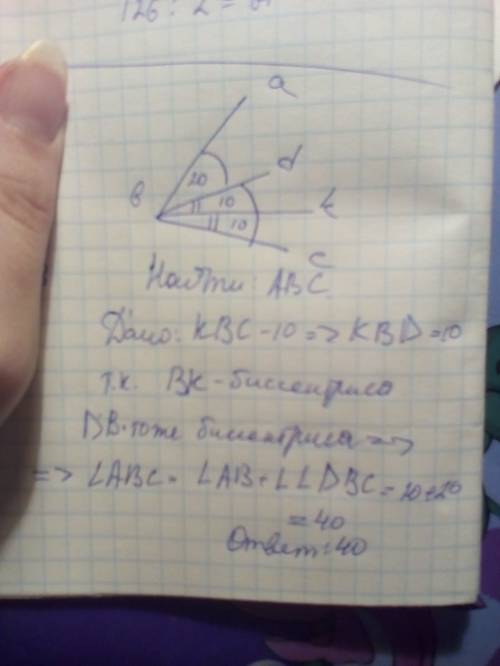 126 : 2 =
a
d
20
в
10
k
10
c
Найти: ABC
Дано: KBC - 10 => KBD = 10
т.к. BK - биссектриса
DB тоже биссектриса =>
=> ∠ABC = ∠AB + ∠∠DBC = 20 + 20
= 40
Ответ: 40